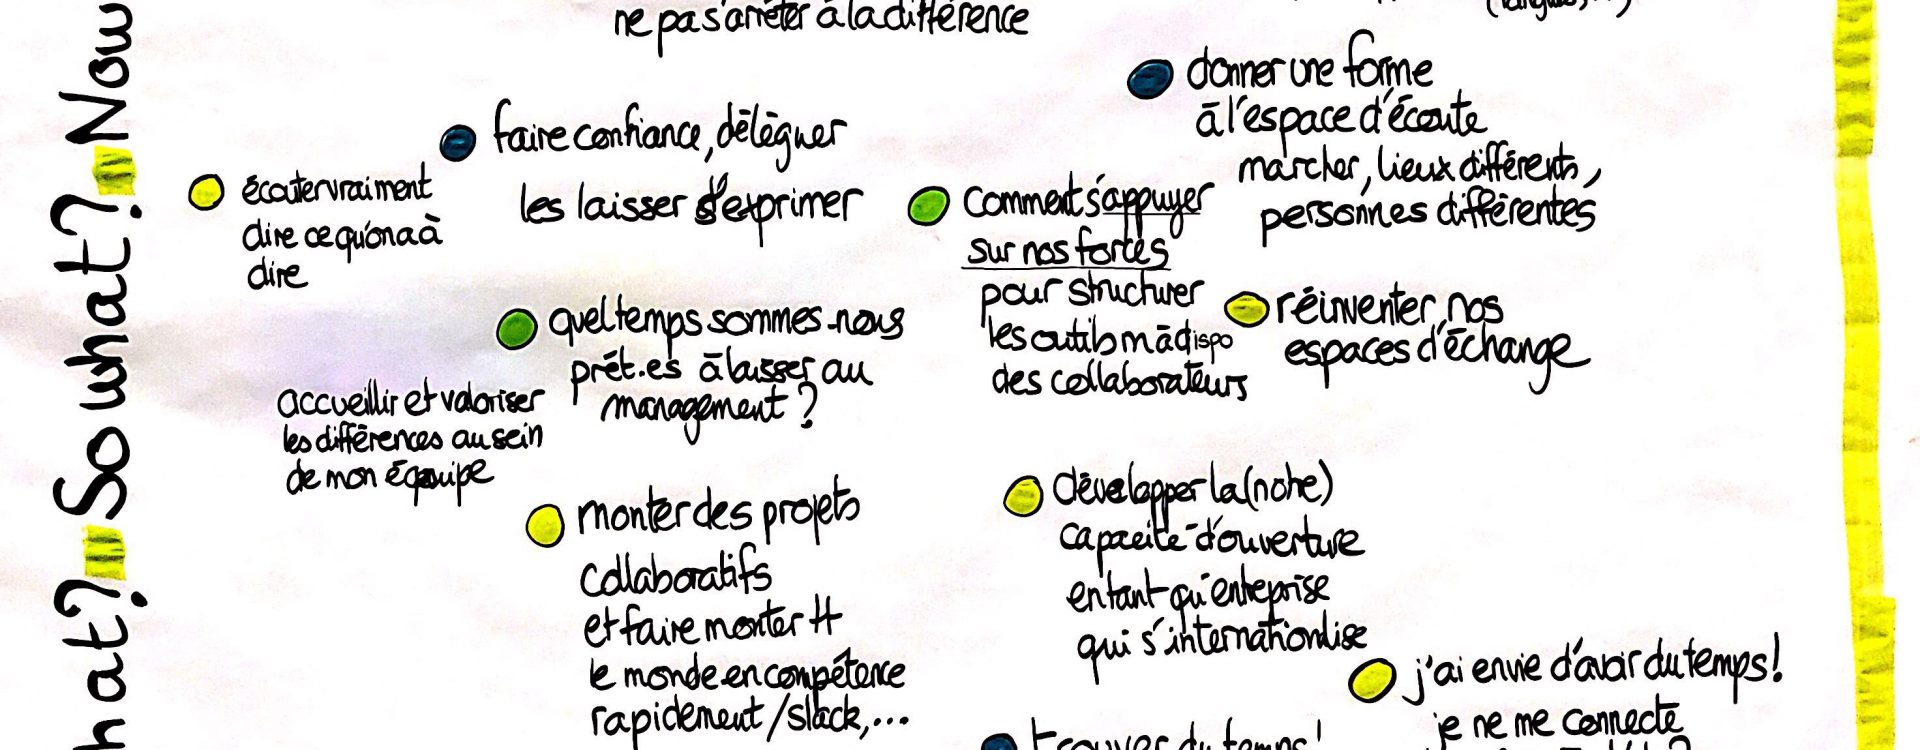 What? So what? Now
ne pas s'arrêter à la différence
(langues, ...)
faire confiance, déléguer
les laisser s'exprimer
écouter vraiment
dire ce qu'on a à
dire
donner une forme
à l'espace d'écoute
marcher, lieux différents,
personnes différentes
comment s'appuyer
sur nos forces
pour structurer
les outils m à dispo
des collaborateurs
réinventer nos
espaces d'échange
quel temps sommes-nous
prêt.es à laisser au
management ?
accueillir et valoriser
les différences au sein
de mon équipe
monter des projets
collaboratifs
et faire monter tt
le monde en compétence
rapidement / slack, ...
développer la (notre)
capacité d'ouverture
en tant qu'entreprise
qui s'internationalise
j'ai envie d'avoir du temps !
je ne me connecte
trouver du temps !